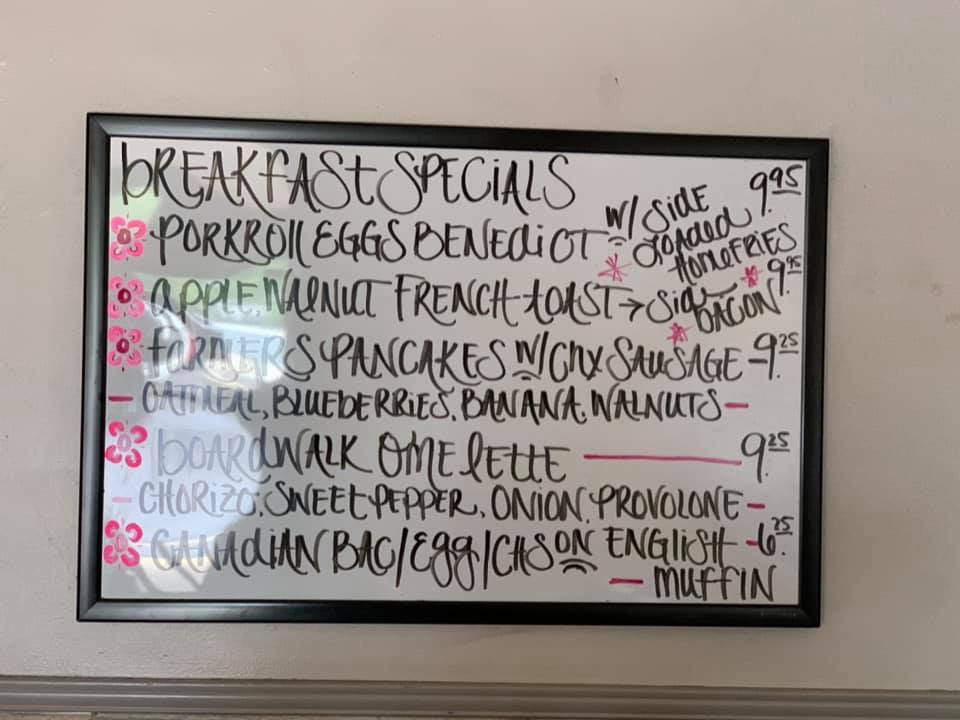 BREAKFAST SPECIALS
PORKROll EGGS BENEDiCT w/ SIDE LOADED HOMEFRIES 9.95
APPLE, WALNUT FRENCH TOAST → Side BACON 9.95
FARMERS PANCAKES w/ CHX SAUSAGE - 9.25
- OATMEAL, BLUEBERRiES, BANANA, WALNUTS -
BOARDWALK OMELETTE — 9.25
- CHORIZO, SWEET PEPPER, ONION, PROVOLONE -
CANADIAN BAC/Egg/CHS ON ENGLISH - 6.25
- MUFFIN